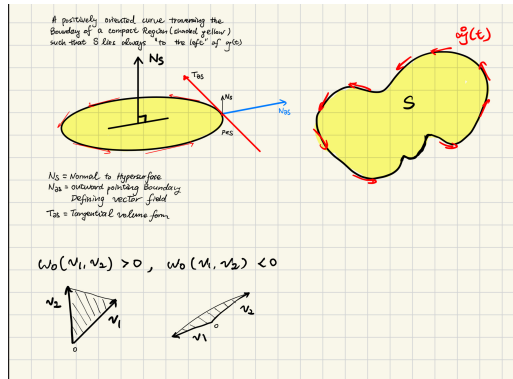 A positively oriented curve traversing the
Boundary of a compact Region (shaded yellow)
such that S lies always "to the left" of g(t)
Ns
T∂s
Ns
N∂s
p∈s
ġ(t)
S
Ns = Normal to Hypersurface
N∂s = outward pointing boundary
Defining vector field
T∂s = Tangential volume form
ω₀(v₁, v₂) > 0 , ω₀(v₁, v₂) < 0
v₂
v₁
0
v₂
v₁
0